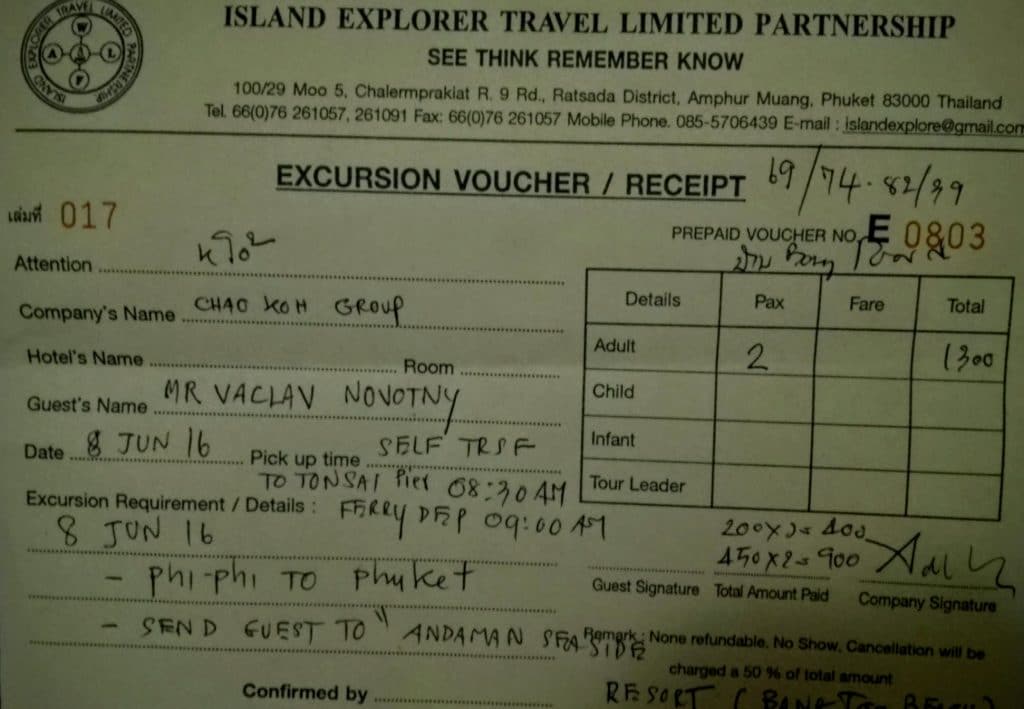 ISLAND EXPLORER TRAVEL LIMITED PARTNERSHIP
W A L F
ISLAND EXPLORER TRAVEL LIMITED PARTNERSHIP
SEE THINK REMEMBER KNOW
100/29 Moo 5, Chalermprakiat R. 9 Rd., Ratsada District, Amphur Muang, Phuket 83000 Thailand
Tel. 66(0)76 261057, 261091 Fax: 66(0)76 261057 Mobile Phone. 085-5706439 E-mail : islandexplore@gmail.com
EXCURSION VOUCHER / RECEIPT 69/74.82/39
เล่มที่ 017
PREPAID VOUCHER NO. E 0803
Attention
Company's Name CHAO KOH GROUP
Hotel's Name Room
Guest's Name MR VACLAV NOVOTNY
Date 8 JUN 16 Pick up time SELF TRSF
TO TONSAI Pier 08:30 AM
Excursion Requirement / Details : FERRY DEP 09:00 AM
8 JUN 16
- PHI-PHI TO PHUKET
- SEND GUEST TO " ANDAMAN SEA SIDE
RESORT
Confirmed by
Details Pax Fare Total
Adult 2 1300
Child
Infant
Tour Leader
200x2=400
450x2=900
Guest Signature Total Amount Paid Company Signature
Remark : None refundable. No Show, Cancellation will be
charged a 50 % of total amount